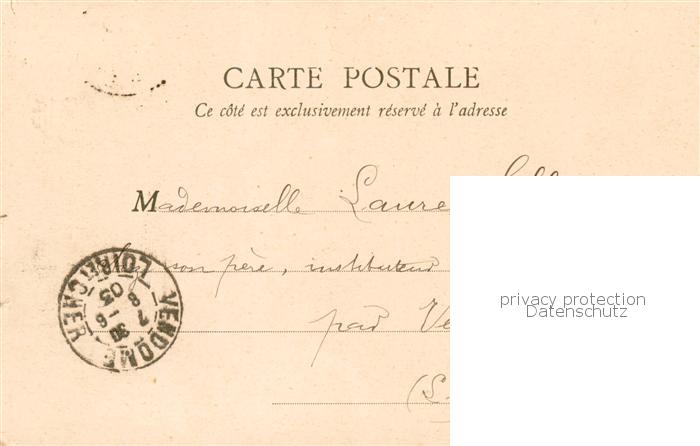 CARTE POSTALE
Ce côté est exclusivement réservé à l'adresse
Mademoiselle Laure
son père, instituteur
par Ve
(S.
VENDOME
LOIR-ET-CHER
privacy protection
Datenschutz